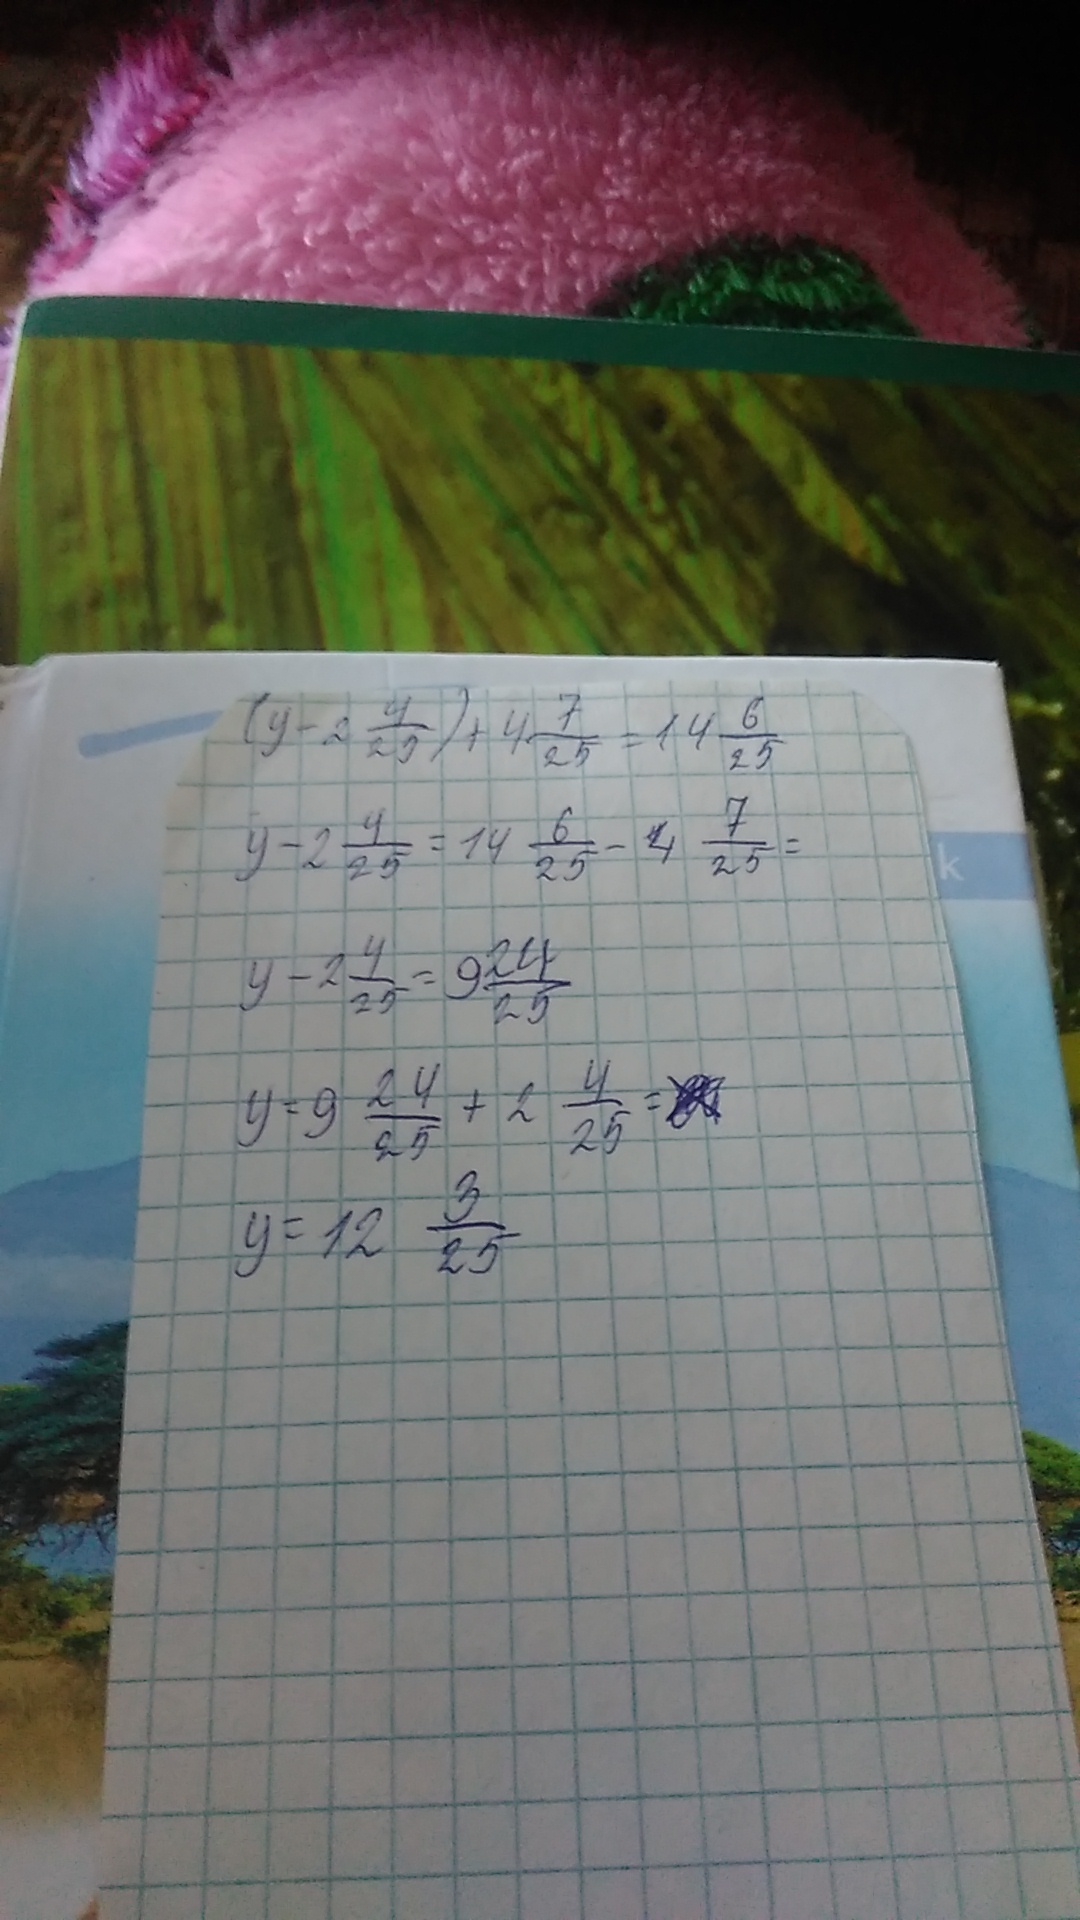 (y - 2 4/25) + 4 7/25 = 14 6/25
y - 2 4/25 = 14 6/25 - 4 7/25 =
y - 2 4/25 = 9 24/25
y = 9 24/25 + 2 4/25 =
y = 12 3/25
k